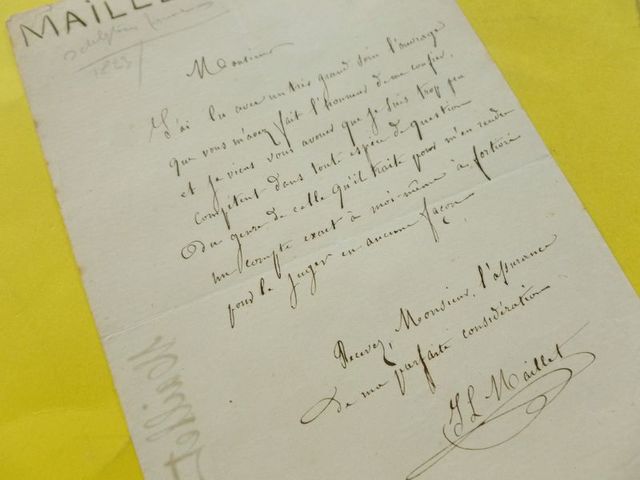 MAILLE
1823
Monsieur
J'ai lu avec un très grand soin l'ouvrage
que vous m'avez fait l'honneur de me confier,
et je viens vous avouer que je suis trop peu
compétent dans tout espèce de question
du genre de celle qu'il traite pour m'en rendre
un compte exact à moi-même à fortiori
pour le juger en aucune façon
Recevez, Monsieur, l'assurance
de ma parfaite considération
J L Maillet